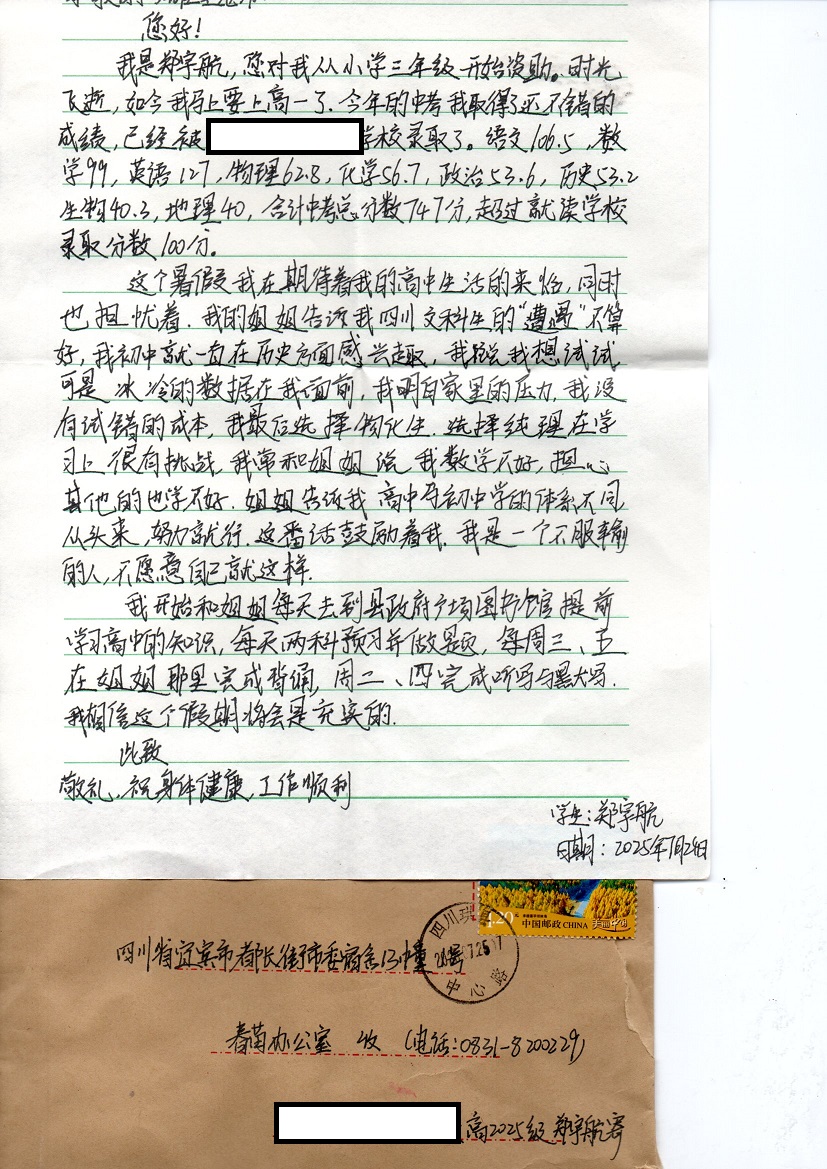 您好!
我是郑宇航,您对我从小学三年级开始资助。时光
飞逝,如今我马上要上高一了.今年的中考我取得了还不错的
成绩,已经被 学校录取了。语文106.5,数
学99,英语127,物理62.8,化学56.7,政治53.6,历史53.2
生物40.3,地理40,合计中考总分数747分,超过就读学校
录取分数100分。
这个暑假我在期待着我的高中生活的来临,同时
也担忧着.我的姐姐告诉我四川文科生的"遭遇"不算
好,我初中就一直在历史方面感兴趣,我说我想试试
可是冰冷的数据在我面前,我明白家里的压力,我没
有试错的成本,我最后选择物化生.选择纯理在学
习上很有挑战,我常和姐姐说我数学不好,担心
其他的也学不好.姐姐告诉我高中与初中学的体系不同
从头来,努力就行.这番话鼓励着我.我是一个不服输
的人,不愿意自己就这样.
我开始和姐姐每天去到县政府广场图书馆提前
学习高中的知识,每天两科预习并做题,每周三、五
在姐姐那里完成背诵,周二、四完成听写与默写.
我相信这个假期将会是充实的.
此致
敬礼.祝身体健康,工作顺利
学生:郑宇航
日期:2025年7月24日
4.20元
中国邮政 CHINA 美丽中国
四川珙县
7.25 17
中心路
四川省宜宾市都长街市委宿舍13幢 号
春苗办公室 收 (电话:0831-8200229)
高2025级 郑宇航寄